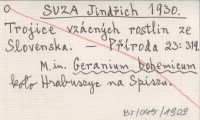 O SUZA Jindřich 1930.
Trojice vzácných rostlin ze
Slovenska. — Příroda 23: 319.
M. in. Geranium bohemicum
koło Hrabuszyc na Spiszu.